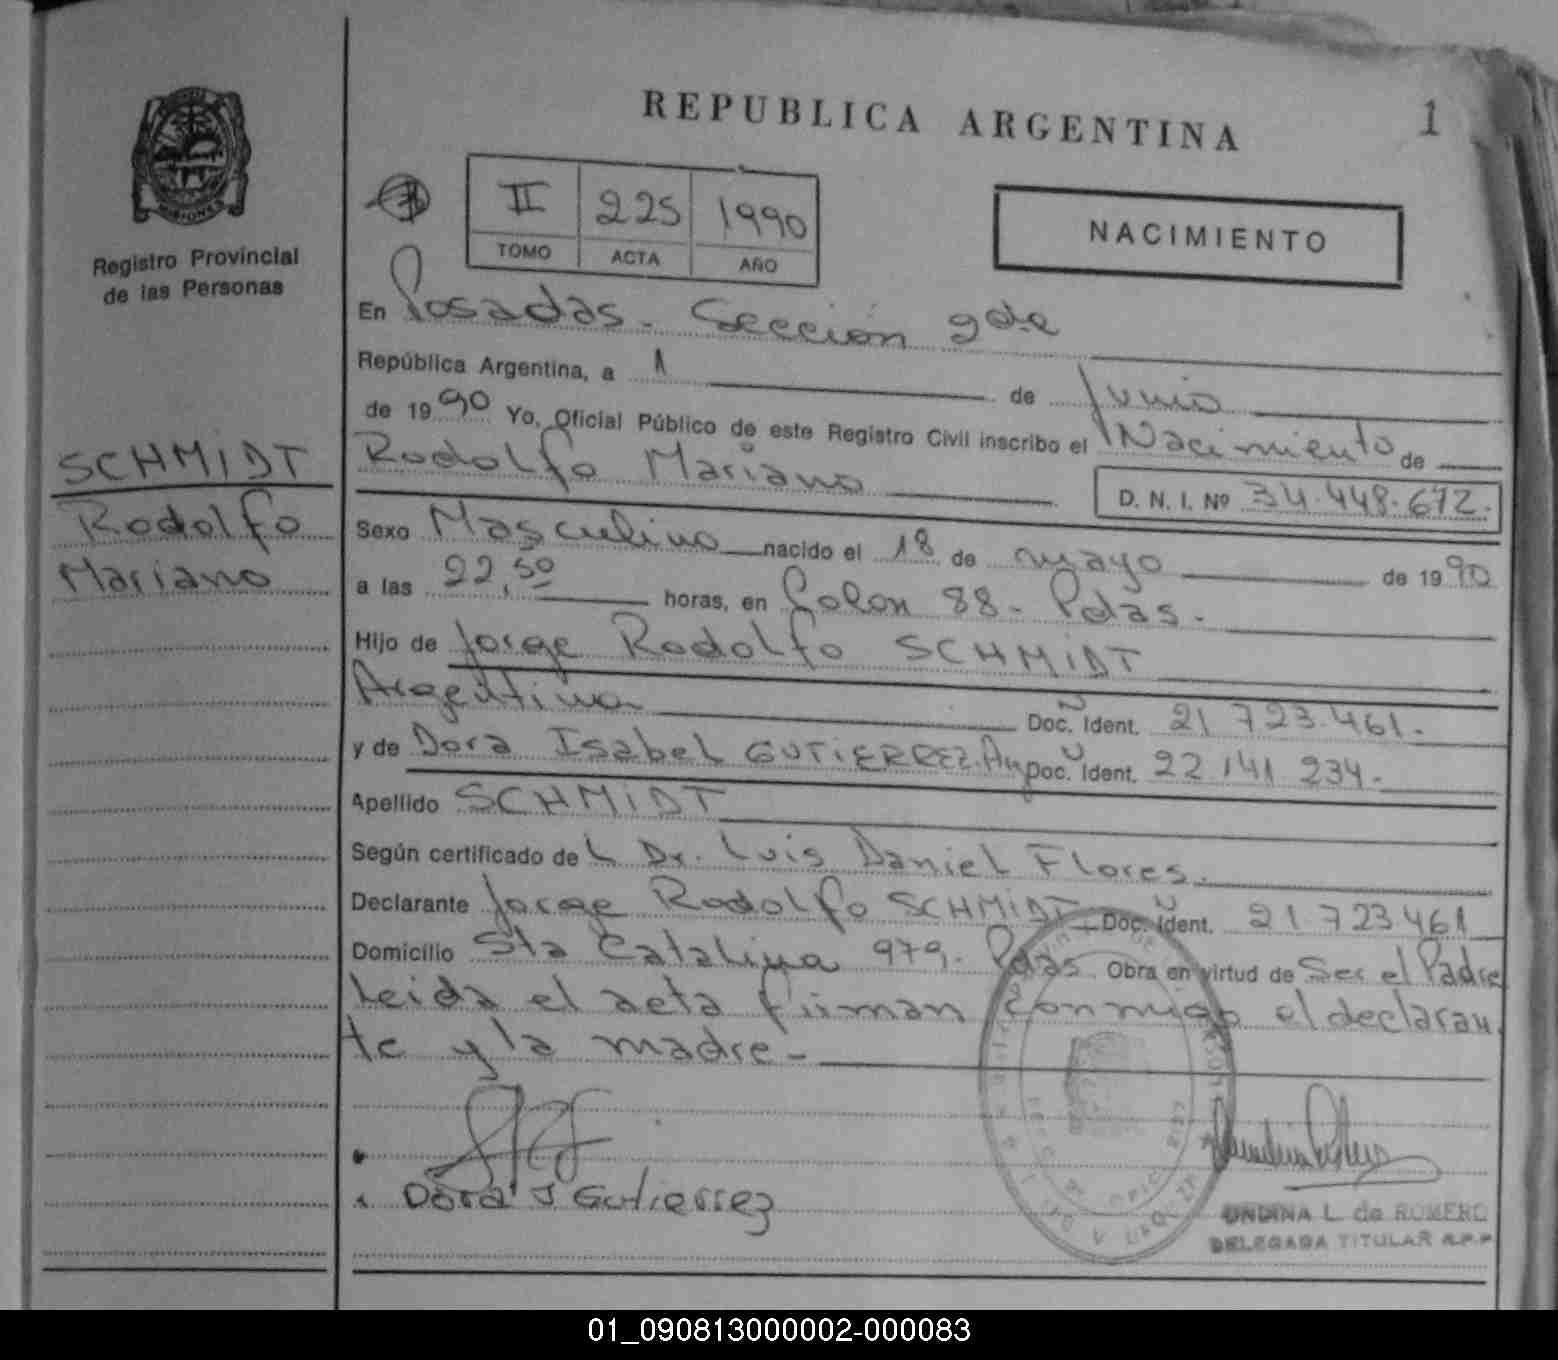 REPUBLICA ARGENTINA
1
MISIONES
Registro Provincial
de las Personas
II 225 1990
TOMO ACTA AÑO
NACIMIENTO
En Posadas. Sección 2da
República Argentina, a 1 de Junio
de 1990 Yo, Oficial Público de este Registro Civil inscribo el Nacimiento de
SCHMIDT
Rodolfo
Mariano
Rodolfo Mariano
D. N. I. Nº 34.448.672.
Sexo Masculino nacido el 18 de mayo de 1990
a las 22,50 horas, en Colon 88 - Pdas.
Hijo de Jorge Rodolfo SCHMIDT
Argentina Doc. Ident. 21 723.461.
y de Dora Isabel GUTIERREZ. Doc. Ident. 22 141 234.
Apellido SCHMIDT
Según certificado de L Dr. Luis Daniel Flores.
Declarante Jorge Rodolfo SCHMIDT Doc. Ident. 21.723461
Domicilio Sta Catalina 979. Pdas. Obra en virtud de Ser el Padre
Leida el acta firman conmigo el declaran
te y la madre -
Dora I Gutierrez
ONDINA L. de ROMERO
DELEGADA TITULAR R.P.P
01_090813000002-000083